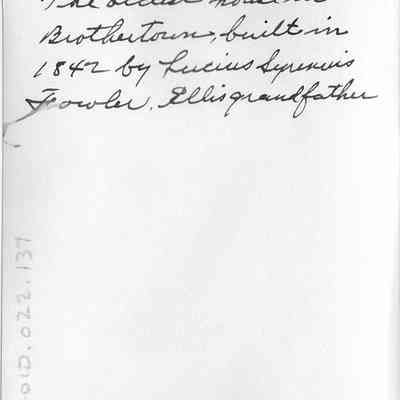 The oldest house in
Brothertown, built in
1842 by Lucius Syrenius
Fowler, Ellis grandfather
010.022.137